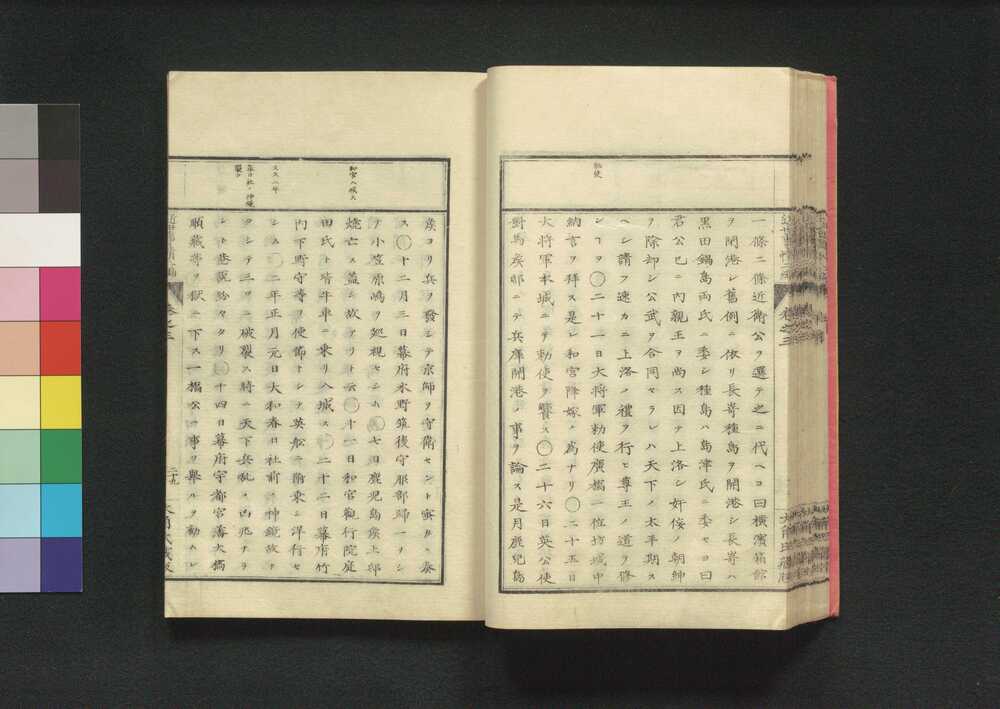 勅使
一條二條近衛公ヲ遷テ之ニ代ヘコ曰横濱箱館
ヲ閉港シ舊例ニ依リ長嵜種島ヲ開港シ長嵜ハ
黒田鍋島両氏ニ委シ種島ハ島津氏ニ委セヨ曰
君公已ニ内親王ヲ尚ス因テ上洛シ奸佞ノ朝紳
ヲ除却シ公武ヲ合同セラレハ天下ノ太平期ス
ヘシ請フ速カニ上洛ノ禮ヲ行ヒ尊王ノ道ヲ修
シヿヲ〇二十一日大将軍勅使廣橋一位坊城中
納言ヲ拜ス是レ和宮降嫁ノ為ナリ〇二十五日
大将軍本城ニテ勅使ヲ饗ス〇二十六日英公使
對馬矦邸ニテ兵庫開港ノ事ヲ論ス是月鹿兒島
和宮入城ス
文久二年
春日社ノ神鏡
裂ク
矦ヨリ兵ヲ發シテ京師ヲ守衛セント密カニ奏
ス〇十二月三日幕府水野筑後守服部歸一ヲシ
テ小笠原嶋ヲ廵視セシム〇七日鹿児島矦上邸
燒亡ス蓋シ故アリト云〇十一日和宮觀行院庭
田氏ト皆牛車ニ乗リ入城ス〇二十二日幕府竹
内下野守等ヲ使節トシテ英舩ニ附乗シ洋行セ
シム〇二年正月元日大和春日社前ノ神鏡故ナ
クシテ三ツニ破裂ス将ニ天下兵乱ノ凶兆ナラ
ント巷説紛々タリ〇十四日幕府宇都宮藩大橋
順蔵等ヲ獄ニ下ス一橋公ニ事ヲ舉ルヲ勸ムレ
巻之三
二十九